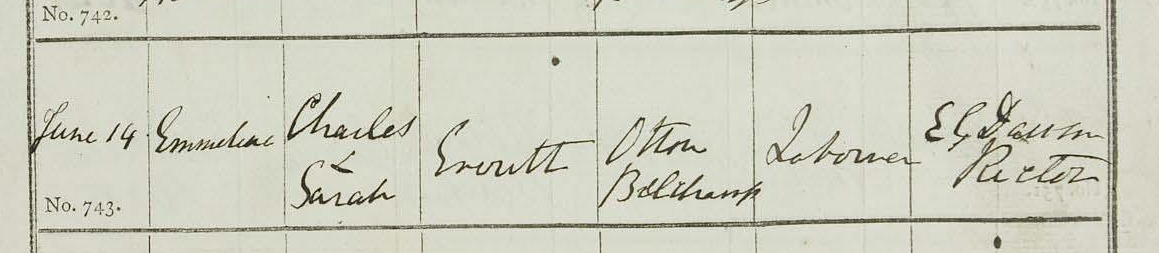 No. 742.
June 14
Emmeline
Charles
&
Sarah
Everett
Otton
Belchamp
Labourer
E G Dawson
Rector
No. 743.